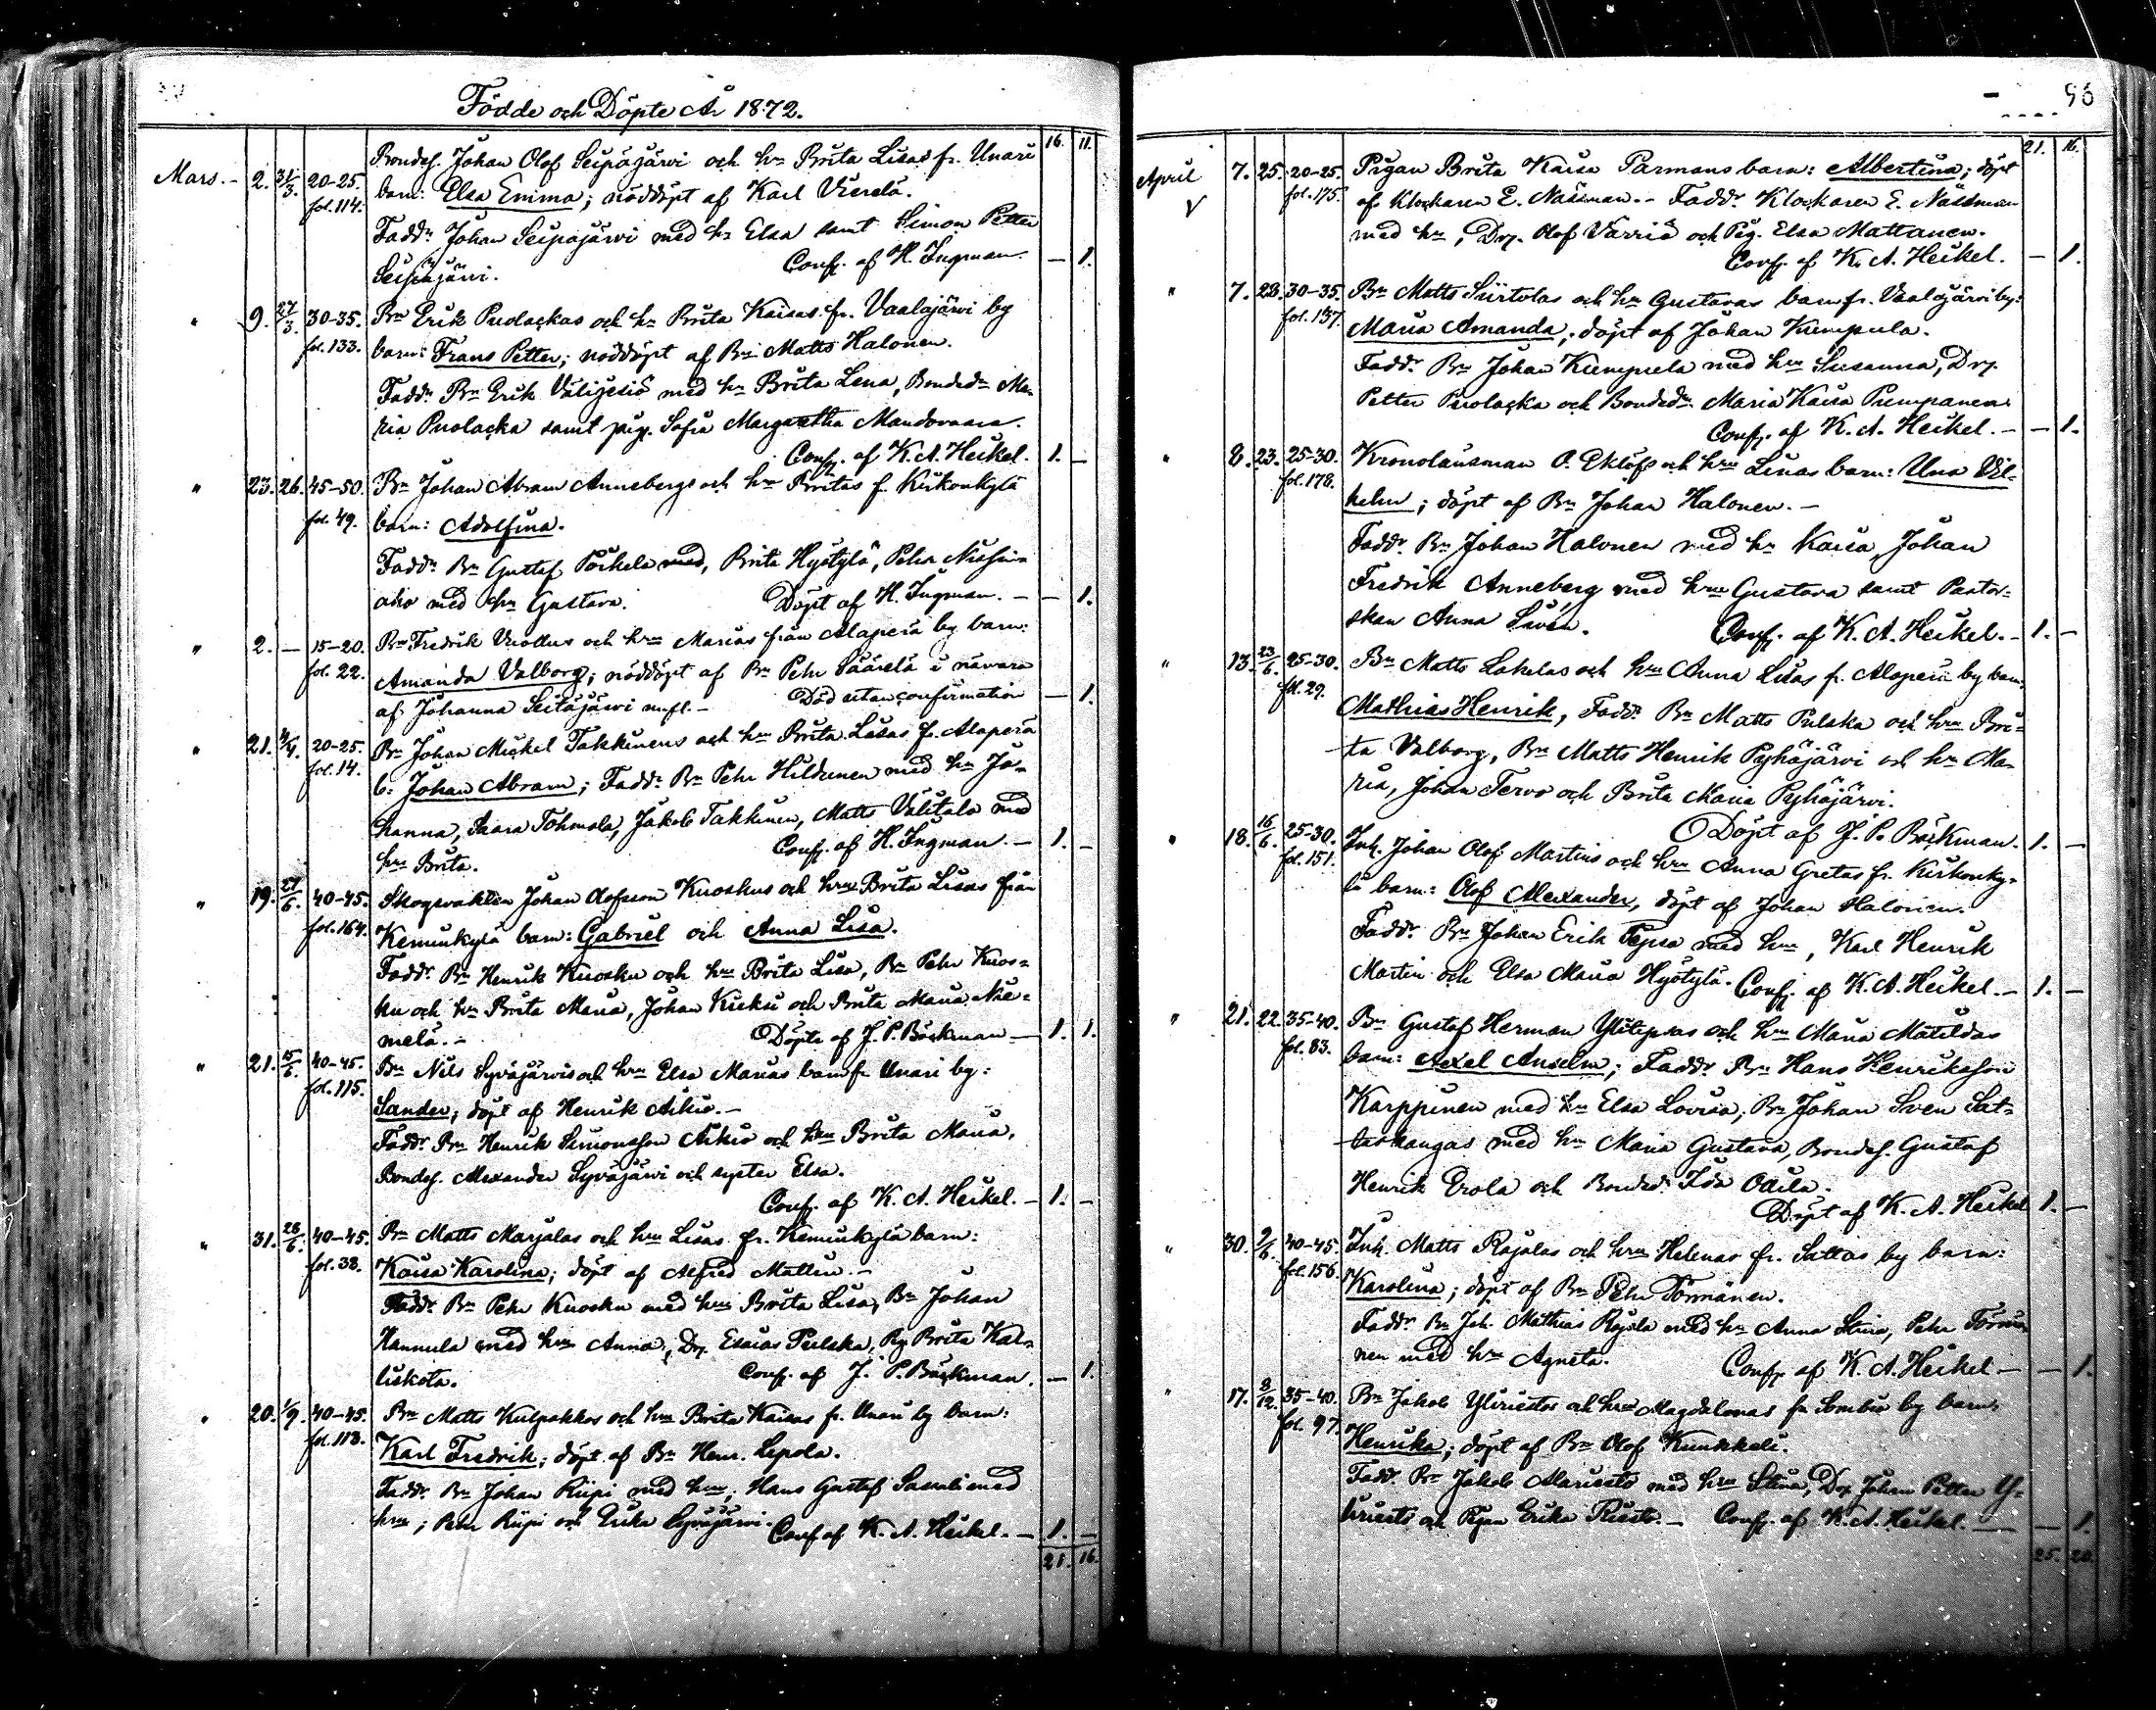 Födde och Döpte År 1872.
16. 11.
Mars. - 2. 31/3. 20-25. fol. 114. Bondes. Johan Olof Seipäjärvi och h:u Brita Lisas fr. Unari
barn: Elsa Emma; nöddöpt af Karl Vierelä.
Fadd:r Johan Seipäjärvi med h:u Elsa samt Simon Petter
Seipäjärvi. Conf. af H. Ingman. — 1.
" 9. 27/3. 30-35. fol. 133. B:n Erik Puolackas och h:u Brita Kaisas fr. Vaalajärvi by
barn: Frans Petter; nöddöpt af B:n Matts Halonen.
Fadd:r B:n Erik Välijesiö med h:u Brita Lena, Bonded:r Ma-
ria Puolacka samt pig. Sofia Margaretha Mandovaara.
Conf. af K. A. Heikel. 1. —
" 23. 26. 45-50. fol. 49. B:n Johan Abram Annebergs och h:us Britas f. Kirkonkylä
barn: Adolfina.
Fadd:r B:n Gustaf Pöckelä med, Brita Hyötylä, Pehr
aho med h:u Gustava. Döpt af H. Ingman. — — 1.
" 2. — 15-20. fol. 22. B:n Fredrik Vuollus och h:us Marias från Alaperä by barn:
Amanda Valborg; nöddöpt af B:n Pehr Säärelä i närvaro
af Johanna Seitajärvi m.fl. - Död utan confirmation — 1.
" 21. 4/4. 20-25. fol. 14. B:n Johan Mickel Takkinens och h:u Brita Lisas fr. Alaperä
b: Johan Abram; Fadd:r B:n Pehr Hildunen med h:u Jo-
hanna, Saara Tohmola, Jakob Takkinen, Matts Välitalo med
h:u Brita. Conf. af H. Ingman. — 1. —
" 19. 27/6. 40-45. fol. 164. Skogsvakten Johan Olofsson Kuoskus och h:us Brita Lisas från
Keminkylä barn: Gabriel och Anna Lisa.
Fadd:r B:n Henrik Kuosku och h:u Brita Lisa, B:n Pehr Kuos-
ku och h:u Brita Maria, Johan Kieksi och Brita Maria Nie-
melä. - Döpte af J. P. Bäckman — 1. 1.
" 21. 15/6. 40-45. fol. 115. B:n Nils Syväjärvis och h:us Elsa Marias barn fr Unari by:
Sander; döpt af Henrik Aikio. -
Fadd:r B:n Henrik Simonsson Aikio och h:us Brita Maria,
Bondes. Alexander Syväjärvi och syster Elsa.
Conf. af K. A. Heikel. - 1. -
" 31. 28/6. 40-45. fol. 38. B:n Matts Marjalas och h:us Lisas fr. Keminkylä barn:
Kaisa Karolina; döpt af Alfred Mattlin. -
Fadd:r B:n Pehr Kuosku med h:us Brita Lisa, B:n Johan
Hannula med h:us Anna, Drg. Esaias Pulska, Pig. Brita Kal-
liskota. Conf. af J. P. Bäckman. — 1.
" 20. 1/9. 40-45. fol. 113. B:n Matts Kulpakkos och h:us Brita Kaisas fr. Unari by barn:
Karl Fredrik; döpt af B:n Henr. Lepola.
Fadd:r B:n Johan Riipi med h:us; Hans Gustaf Sassali med
h:us; Pehr Riipi och Erika Syväjärvi. Conf af K. A. Heikel. — 1. —
21. 16.
96
21. 16.
April V 7. 25. 20-25. fol. 175. Pigan Brita Kaisa Parmans barn: Albertina; döpt
af Klockaren E. Nässman. - Fadd:r Klockaren E. Nässman
med h:u, Drg. Olof Värriö och Pig. Elsa Mattanen.
Conf. af K. A. Heikel. — 1.
" 7. 28. 30-35. fol. 137. B:n Matts Siirtolas och h:us Gustavas barn fr. Vaalajärvi by:
Maria Amanda; döpt af Johan Kumpula.
Fadd:r B:n Johan Kumpula med h:us Susanna, Drg.
Petter Puolacka och Bonded:r Maria Kaisa Pumpanen.
Conf. af K. A. Heikel. - — 1.
" 8. 23. 25-30. fol. 178. Kronolänsman O. Eklöfs och h:us Linas barn: Una Vil-
helm; döpt af B:n Johan Halonen. -
Fadd:r B:n Johan Halonen med h:u Kaisa, Johan
Fredrik Anneberg med h:us Gustava samt Pastor-
skan Anna Lavén. Conf. af K. A. Heikel. - 1. -
" 13. 23/6. 25-30. fol. 29. B:n Matts Lokelas och h:us Anna Lisas fr. Alaperä by barn:
Mathias Henrik, Fadd:r B:n Matts Pulska och h:us Bri-
ta Valborg, B:n Matts Henrik Pyhäjärvi och h:u Ma-
ria, Johan Tervo och Brita Maria Pyhäjärvi.
Döpt af J. P. Bäckman. 1. —
" 18. 16/6. 25-30. fol. 151. Inh. Johan Olof Martins och h:us Anna Gretas fr. Kirkonky-
lä barn: Olof Alexander, döpt af Johan Halonen.
Fadd:r B:n Johan Erik Tepsa med h:us, Karl Henrik
Martin och Elsa Maria Hyötylä. Conf. af K. A. Heikel. - 1. —
" 21. 22. 35-40. fol. 83. B:n Gustaf Herman Ylitepsas och h:us Maria Matildas
barn: Axel Anselm; Fadd:r B:n Hans Henriksson
Karppinen med h:u Elsa Lovisa; B:n Johan Sven Sat-
taskangas med h:us Maria Gustava, Bondes. Gustaf
Henrik Erola och Bonded:r Ida Odila.
Döpt af K. A. Heikel 1. —
" 30. 9/6. 40-45. fol. 156. Inh. Matts Rajalas och h:us Helenas fr. Sattas by barn:
Karolina; döpt af B:n Pehr Törmänen.
Fadd:r B:n Joh. Mathias Rajala med h:u Anna Stina, Pehr Törmä-
nen med h:us Agneta. Conf af K. A. Heikel — — 1.
" 17. 8/12. 35-40. fol. 97. B:n Jakob Yliriestos och h:us Magdalenas fr Sombio by barn:
Henrika; döpt af B:n Olof Kumskali.
Fadd:r B:n Jakob Alariesto med h:us Stina, Drg. Johan Petter Y-
liriesto och Pigan Erika Riesto. - Conf. af K. A. Heikel. — — 1.
25. 20.